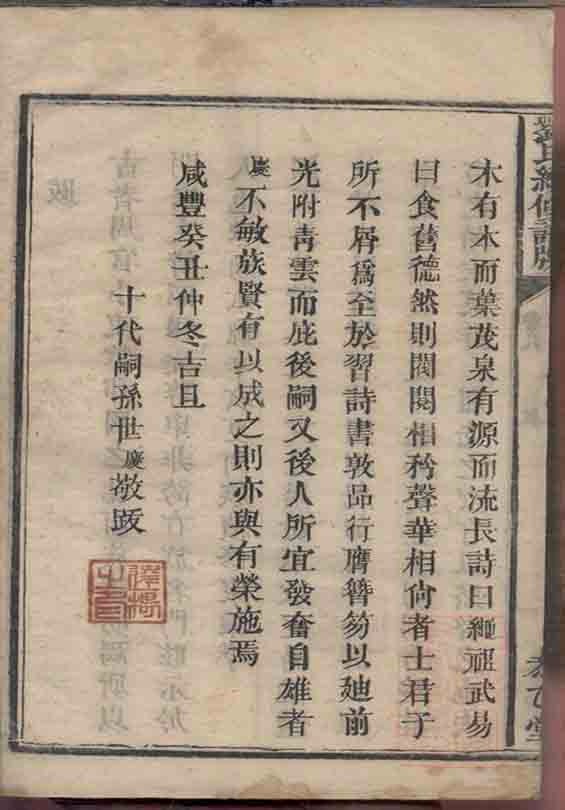 木有木而葉茂泉有源而流長詩曰繩祖武易
曰食舊德然則閥閱相矜聲華相尙者士君子
所不屑爲至於習詩書敦品行膺簪笏以廸前
光附青雲而庇後嗣又後人所宜發奮自雄者
慶不敏族賢有以成之則亦與有榮施焉
咸豐癸丑仲冬吉旦
十代嗣孫世慶敬跋